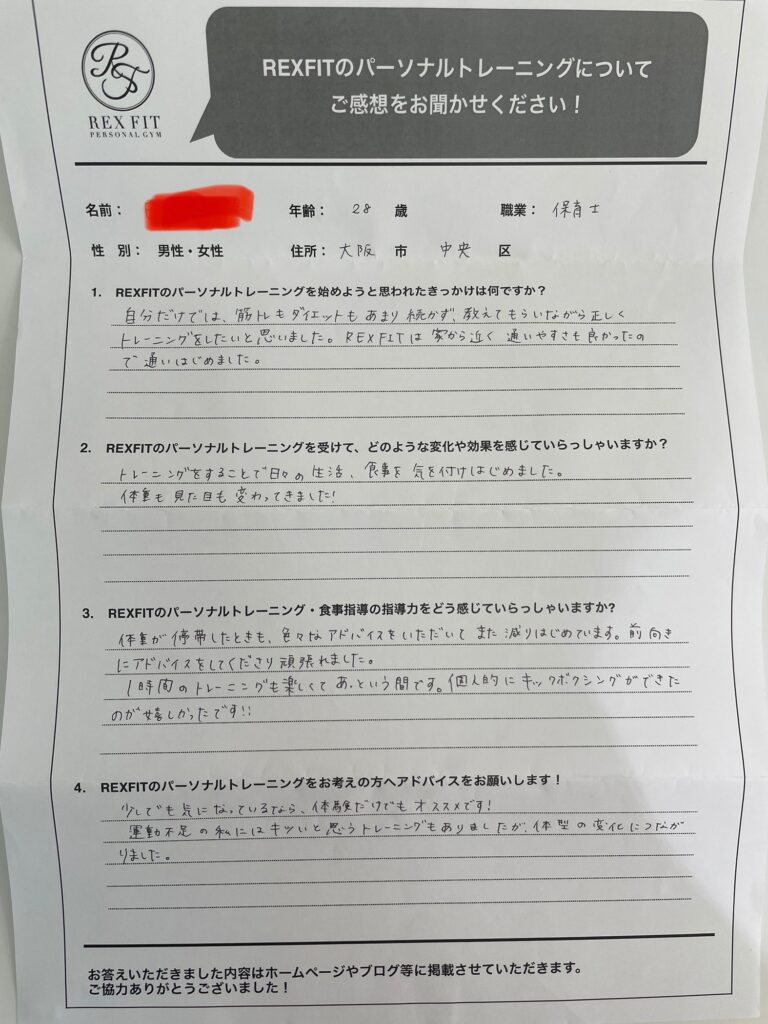 RST
REX FIT
PERSONAL GYM
REXFITのパーソナルトレーニングについて
ご感想をお聞かせください!
名前: 年齢: 28 歳 職業: 保育士
性 別: 男性・女性 住所: 大阪 市 中央 区
1. REXFITのパーソナルトレーニングを始めようと思われたきっかけは何ですか?
自分だけでは、筋トレもダイエットもあまり続かず、教えてもらいながら正しく
トレーニングをしたいと思いました。REXFITは家から近く通いやすさも良かったの
で通いはじめました。
2. REXFITのパーソナルトレーニングを受けて、どのような変化や効果を感じていらっしゃいますか?
トレーニングをすることで日々の生活、食事を気を付けはじめました。
体重も見た目も変わってきました!
3. REXFITのパーソナルトレーニング・食事指導の指導力をどう感じていらっしゃいますか?
体重が停帯したときも、色々なアドバイスをいただいてまた減りはじめています。前向き
にアドバイスをしてくださり頑張れました。
1時間のトレーニングも楽しくてあっという間です。個人的にキックボクシングができた
のが嬉しかったです!!
4. REXFITのパーソナルトレーニングをお考えの方へアドバイスをお願いします!
少しでも気になっているなら、体験だけでもオススメです!
運動不足の私にはキツいと思うトレーニングもありましたが、体型の変化につなが
りました。
お答えいただきました内容はホームページやブログ等に掲載させていただきます。
ご協力ありがとうございました!